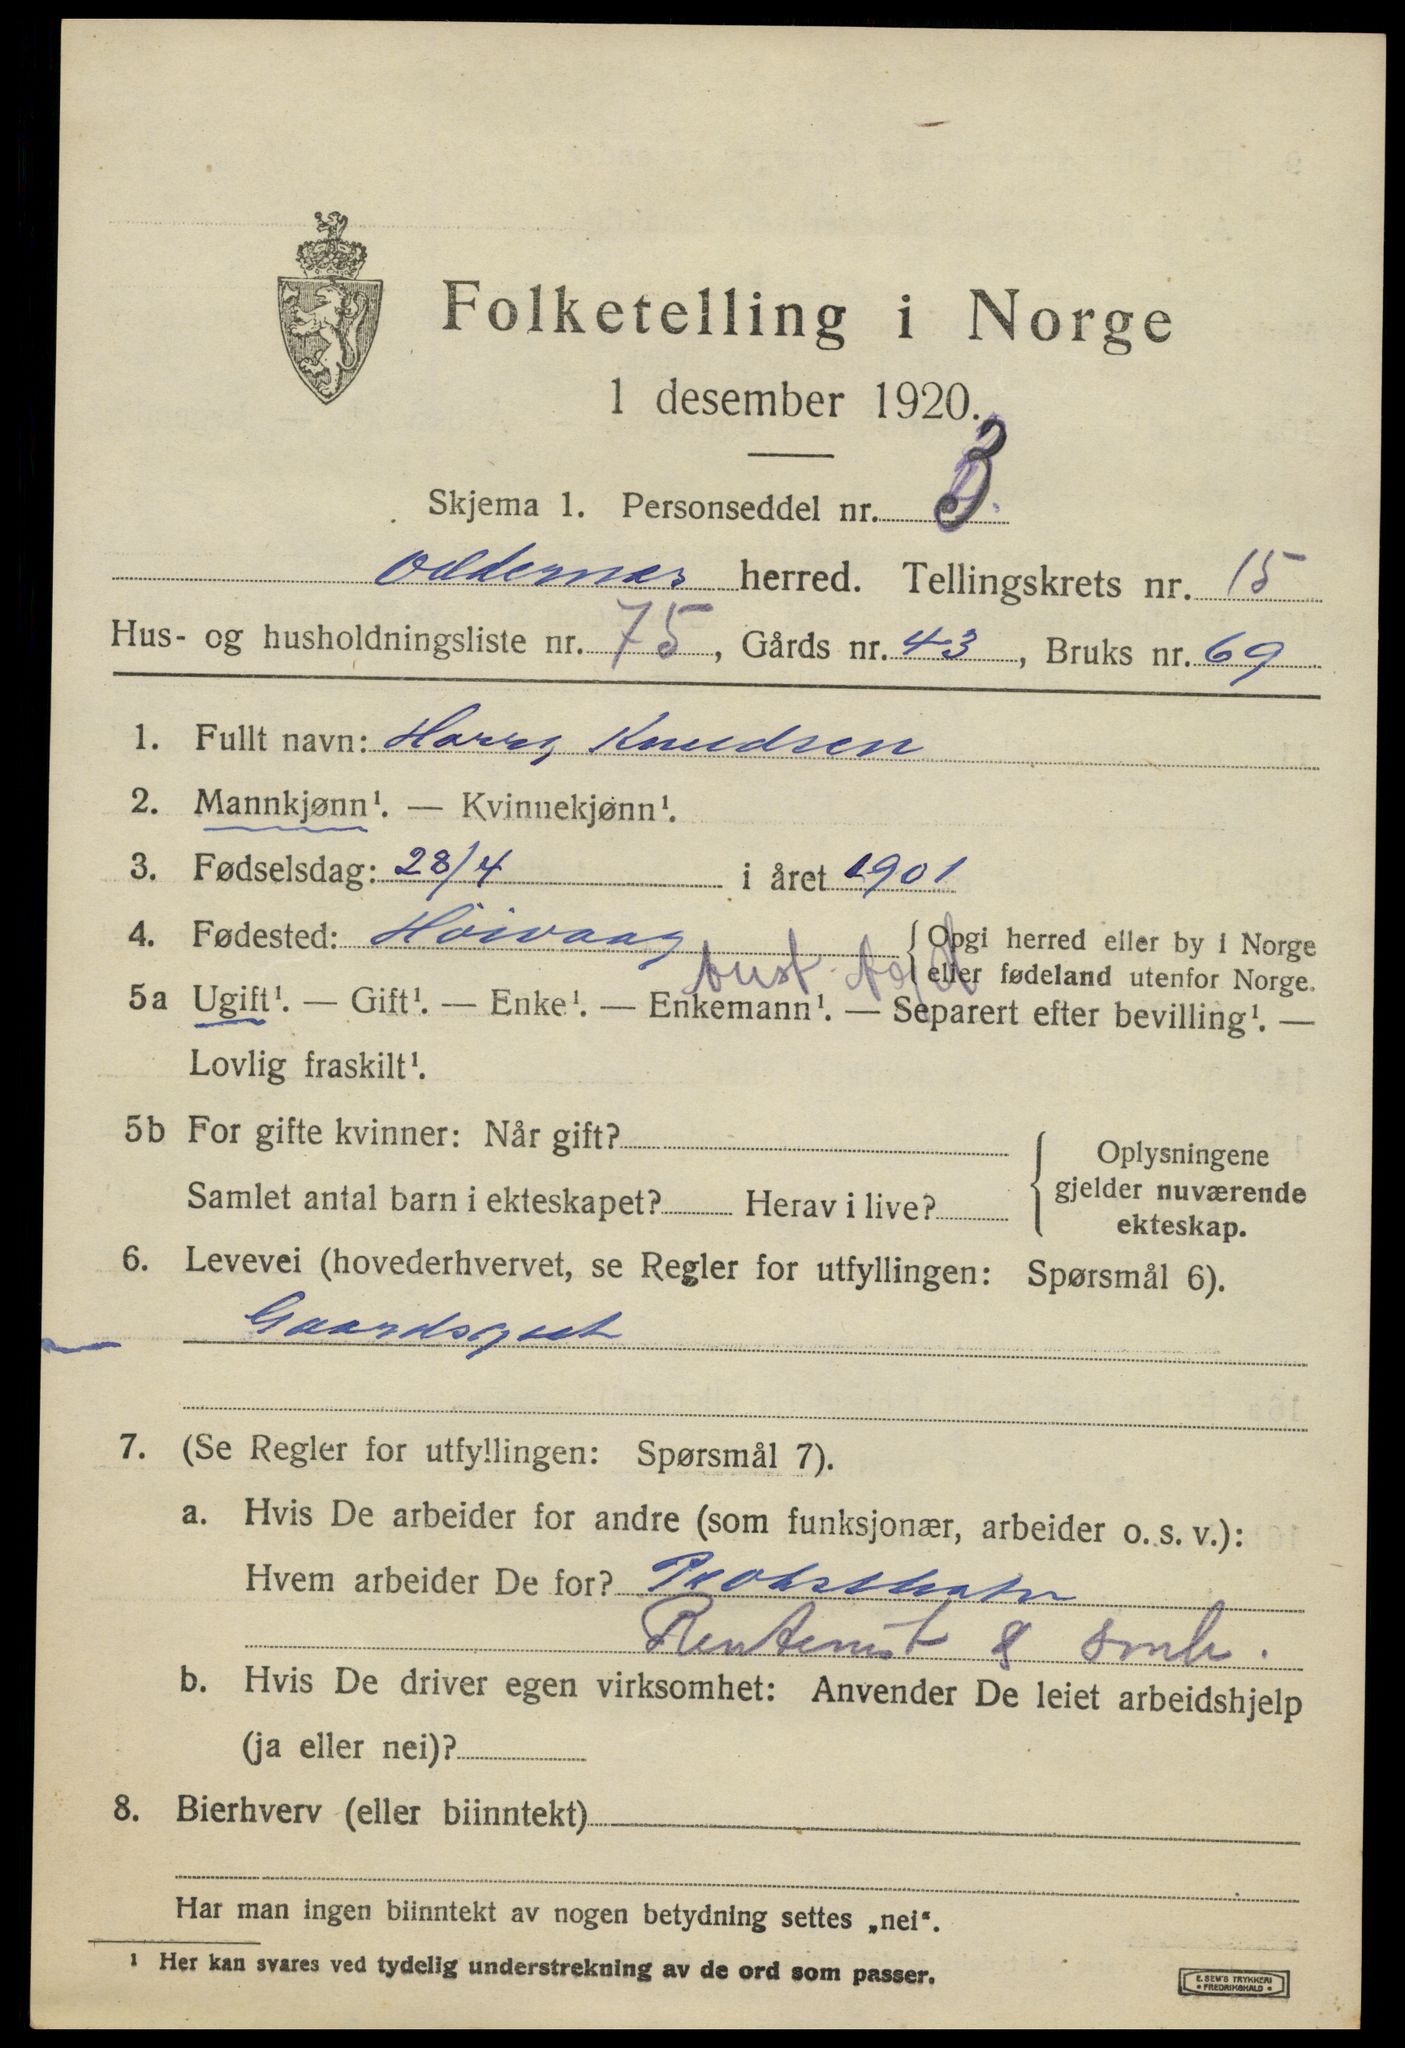 Folketelling i Norge
1 desember 1920.
Skjema 1. Personseddel nr. 3
Oddernes herred. Tellingskrets nr. 15
Hus- og husholdningsliste nr. 75, Gårds nr. 43, Bruks nr. 69
1. Fullt navn: Harry Knudsen
2. Mannkjønn¹. — Kvinnekjønn¹.
3. Fødselsdag: 28/4 i året 1901
4. Fødested: Höivaag { Opgi herred eller by i Norge
Aust-Agd { eller fødeland utenfor Norge.
5a Ugift¹. — Gift¹. — Enke¹. — Enkemann¹. — Separert efter bevilling¹. —
Lovlig fraskilt¹.
5b For gifte kvinner: Når gift?
Samlet antal barn i ekteskapet? Herav i live?
{ Oplysningene
gjelder nuværende
ekteskap.
6. Levevei (hovederhvervet, se Regler for utfyllingen: Spørsmål 6).
Gaardsgut
7. (Se Regler for utfyllingen: Spørsmål 7).
a. Hvis De arbeider for andre (som funksjonær, arbeider o. s. v.):
Hvem arbeider De for?
Rentenist & smbr.
b. Hvis De driver egen virksomhet: Anvender De leiet arbeidshjelp
(ja eller nei)?
8. Bierhverv (eller biinntekt)
Har man ingen biinntekt av nogen betydning settes „nei“.
¹ Her kan svares ved tydelig understrekning av de ord som passer.
E. SEM'S TRYKKERI
• FREDRIKSHALD •